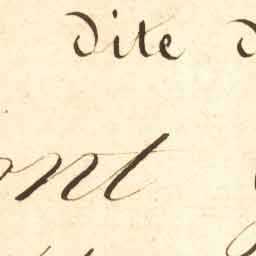 dite d
ont